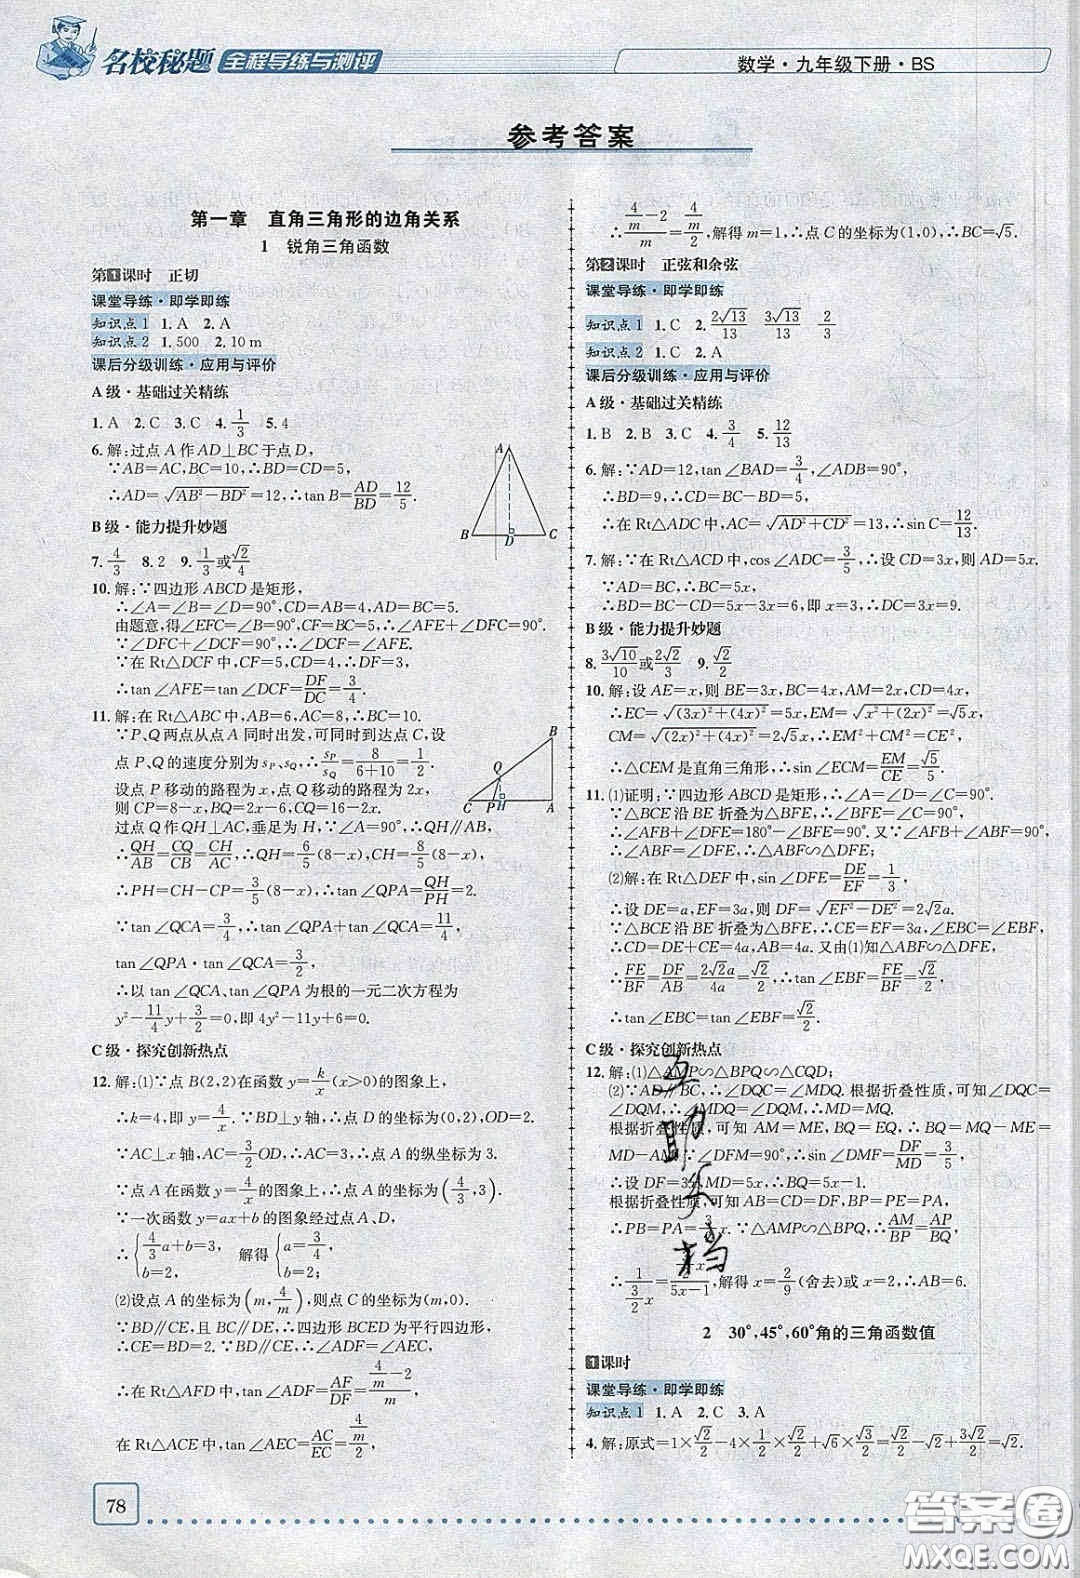 名校秘题 全程导练与测评
数学·九年级下册·BS
参考答案
第一章 直角三角形的边角关系
1 锐角三角函数
第1课时 正切
课堂导练·即学即练
知识点1 1.A 2.A
知识点2 1.500 2.10 m
课后分级训练·应用与评价
A级·基础过关精练
1.A 2.C 3.C 4.1/3 5.4
6.解:过点A作AD⊥BC于点D,
∵AB=AC,BC=10,∴BD=CD=5,
∴AD=√(AB²-BD²)=12,∴tan B=AD/BD=12/5.
A
B D C
B级·能力提升妙题
7.4/3 8.2 9.1/3或√2/4
10.解:∵四边形ABCD是矩形,
∴∠A=∠B=∠D=90°,CD=AB=4,AD=BC=5.
由题意,得∠EFC=∠B=90°,CF=BC=5,∴∠AFE+∠DFC=90°.
∵∠DFC+∠DCF=90°,∴∠DCF=∠AFE.
∵在Rt△DCF中,CF=5,CD=4,∴DF=3,
∴tan∠AFE=tan∠DCF=DF/DC=3/4.
11.解:在Rt△ABC中,AB=6,AC=8,∴BC=10.
∵P、Q两点从点A同时出发,可同时到达点C,设
点P、Q的速度分别为s_P、s_Q,∴s_P/s_Q=8/(6+10)=1/2.
设点P移动的路程为x,点Q移动的路程为2x,
则CP=8-x,BQ=2x-6,CQ=16-2x.
过点Q作QH⊥AC,垂足为H,∵∠A=90°,∴QH∥AB,
∴QH/AB=CQ/CB=CH/AC,∴QH=6/5(8-x),CH=8/5(8-x),
∴PH=CH-CP=3/5(8-x),∴tan∠QPA=QH/PH=2.
∵tan∠QCA=3/4,∴tan∠QPA+tan∠QCA=11/4,
tan∠QPA·tan∠QCA=3/2,
∴以tan∠QCA、tan∠QPA为根的一元二次方程为
y²-11/4y+3/2=0,即4y²-11y+6=0.
B
Q
C P H A
C级·探究创新热点
12.解:⑴∵点B(2,2)在函数y=k/x(x>0)的图象上,
∴k=4,即y=4/x.∵BD⊥y轴,∴点D的坐标为(0,2),OD=2.
∵AC⊥x轴,AC=3/2OD,∴AC=3,∴点A的纵坐标为3.
∵点A在函数y=4/x的图象上,∴点A的坐标为(4/3,3).
∵一次函数y=ax+b的图象经过点A、D,
∴{4/3a+b=3, b=2, 解得{a=3/4, b=2.
⑵设点A的坐标为(m,4/m),则点C的坐标为(m,0).
∵BD∥CE,且BC∥DE,∴四边形BCED为平行四边形,
∴CE=BD=2.∵BD∥CE,∴∠ADF=∠AEC,
∴在Rt△AFD中,tan∠ADF=AF/DF=(4/m-2)/m,
在Rt△ACE中,tan∠AEC=AC/EC=(4/m)/2,
78
∴(4/m-2)/m=(4/m)/2,解得m=1,∴点C的坐标为(1,0),∴BC=√5.
第2课时 正弦和余弦
课堂导练·即学即练
知识点1 1.C 2.2√13/13 3√13/13 2/3
知识点2 1.C 2.A
课后分级训练·应用与评价
A级·基础过关精练
1.B 2.B 3.C 4.3/4 5.12/13
6.解:∵AD=12,tan∠BAD=3/4,∠ADB=90°,
∴BD=9,∴CD=BC-BD=5,
∴在Rt△ADC中,AC=√(AD²+CD²)=13,∴sin C=12/13.
7.解:∵在Rt△ACD中,cos∠ADC=3/5,∴设CD=3x,则AD=5x.
∵AD=BC,∴BC=5x,
∴BD=BC-CD=5x-3x=6,即x=3,∴CD=3x=9.
B级·能力提升妙题
8.3√10/10或2√2/3 9.√2/2
10.解:设AE=x,则BE=3x,BC=4x,AM=2x,CD=4x,
∴EC=√((3x)²+(4x)²)=5x,EM=√(x²+(2x)²)=√5x,
CM=√((2x)²+(4x)²)=2√5x,∴EM²+CM²=CE²,
∴△CEM是直角三角形,∴sin∠ECM=EM/CE=√5/5.
11.⑴证明:∵四边形ABCD是矩形,∴∠A=∠D=∠C=90°.
∵△BCE沿BE折叠为△BFE,∴∠BFE=∠C=90°,
∴∠AFB+∠DFE=180°-∠BFE=90°.又∵∠AFB+∠ABF=90°,
∴∠ABF=∠DFE,∴△ABF∽△DFE;
⑵解:在Rt△DEF中,sin∠DFE=DE/EF=1/3,
∴设DE=a,EF=3a,则DF=√(EF²-DE²)=2√2a.
∵△BCE沿BE折叠为△BFE,∴CE=EF=3a,∠EBC=∠EBF,
∴CD=DE+CE=4a,AB=4a.又由⑴知△ABF∽△DFE,
∴FE/BF=DF/AB=2√2a/4a=√2/2,∴tan∠EBF=FE/BF=√2/2,
∴tan∠EBC=tan∠EBF=√2/2.
C级·探究创新热点
12.解:⑴△AMP∽△BPQ∽△CQD;
⑵∵AD∥BC,∴∠DQC=∠MDQ.根据折叠性质,可知∠DQC=
∠DQM,∴∠MDQ=∠DQM,∴MD=MQ.
根据折叠性质,可知AM=ME,BQ=EQ,∴BQ=MQ-ME=
MD-AM.∵∠DFM=90°,∴sin∠DMF=DF/MD=3/5,
∴设DF=3x,MD=5x,∴BQ=5x-1.
根据折叠性质,可知AB=CD=DF,BP=PE=PA,
∴PB=PA=3/2x.∵△AMP∽△BPQ,∴AM/BP=AP/BQ,
∴1/(3/2x)=(3/2x)/(5x-1),解得x=2/9(舍去)或x=2,∴AB=6.
2 30°,45°,60°角的三角函数值
1课时
课堂导练·即学即练
知识点1 1.A 2.C 3.A
4.解:原式=1×√2/2-4×1/2×√2/2+√6×√3/2=√2/2-√2+3√2/2=√2.
互助文档
答案圈
MXQE.COM